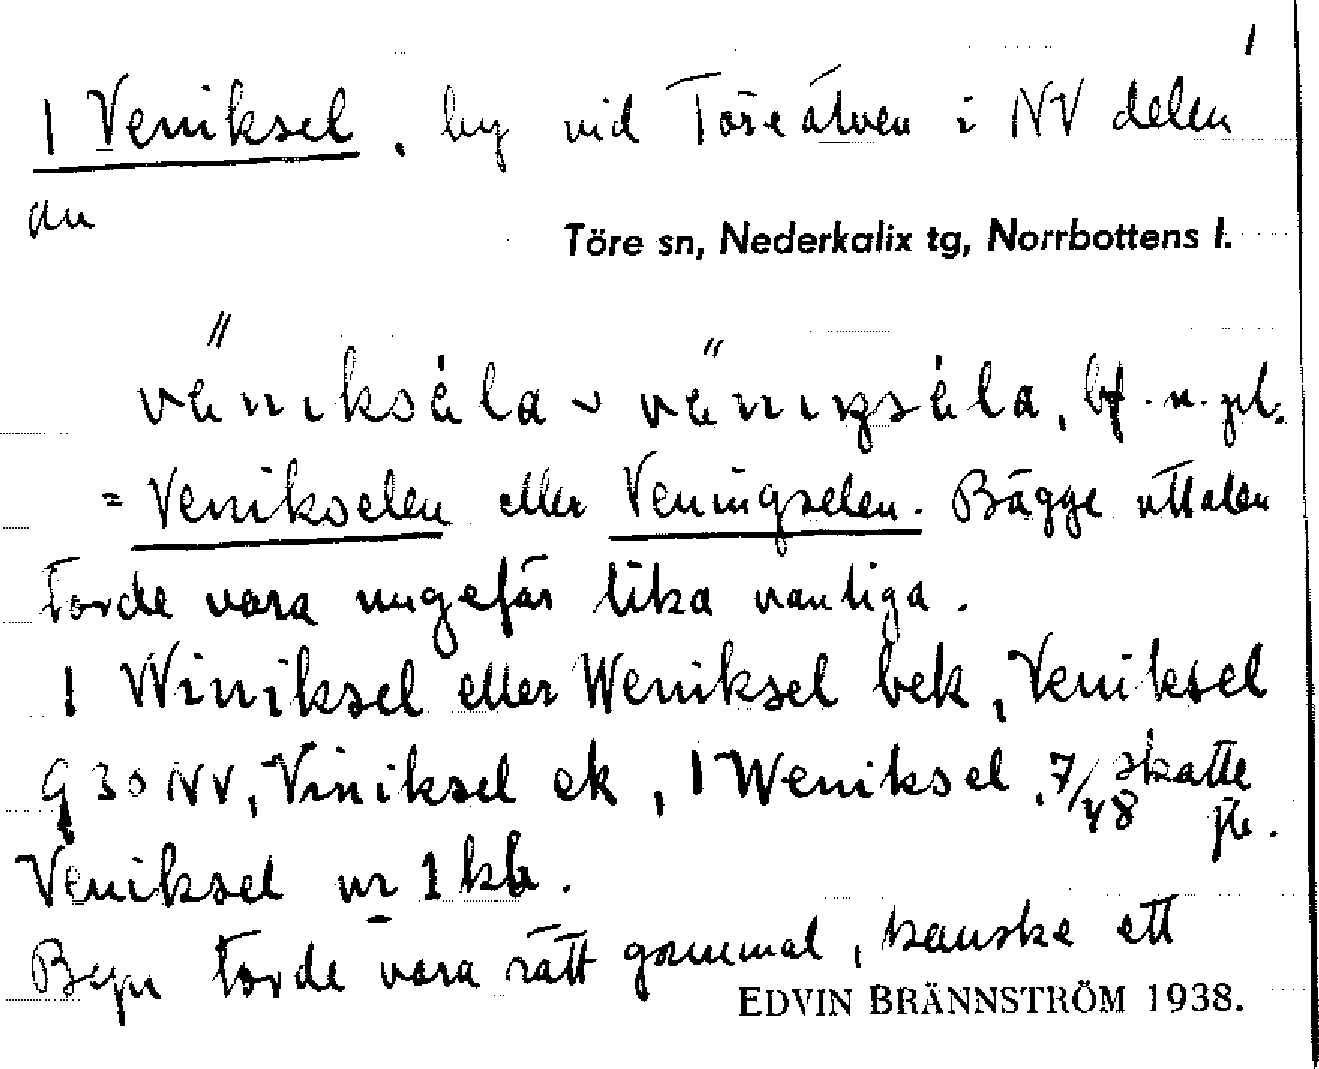 1
1 Veniksel, by vid Töreälven i NV delen
av
Töre sn, Nederkalix tg, Norrbottens l.
väniksèla ~ väningsèla, bf. n. pl.
= Venikselen eller Veningselen. Bägge uttalen
torde vara ungefär lika vanliga.
1 Winiksel eller Weniksel bek, Veniksel
G 30 NV, Viniksel ek, 1 Weniksel, 7/48 skatte
jb.
Veniksel nr 1 kb.
Byn torde vara rätt gammal, kanske ett
EDVIN BRÄNNSTRÖM 1938.